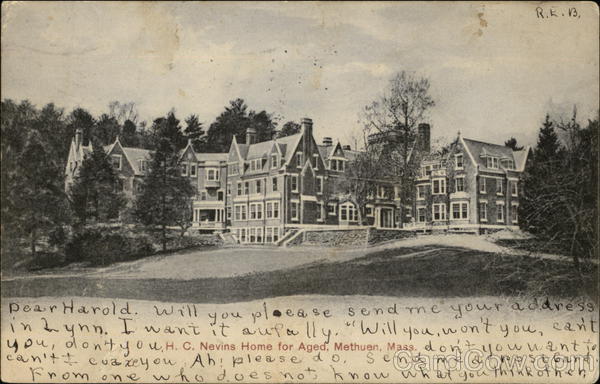 R. E. B.
Dear Harold. Will you please send me your address
in Lynn. I want it awfully. "Will you, won't you, can't
you, don't you don't you want to
H. C. Nevins Home for Aged, Methuen, Mass.
can't I coax you. Ah, please do. Send me a
From one who does not know what you think of her.
CardCow.com